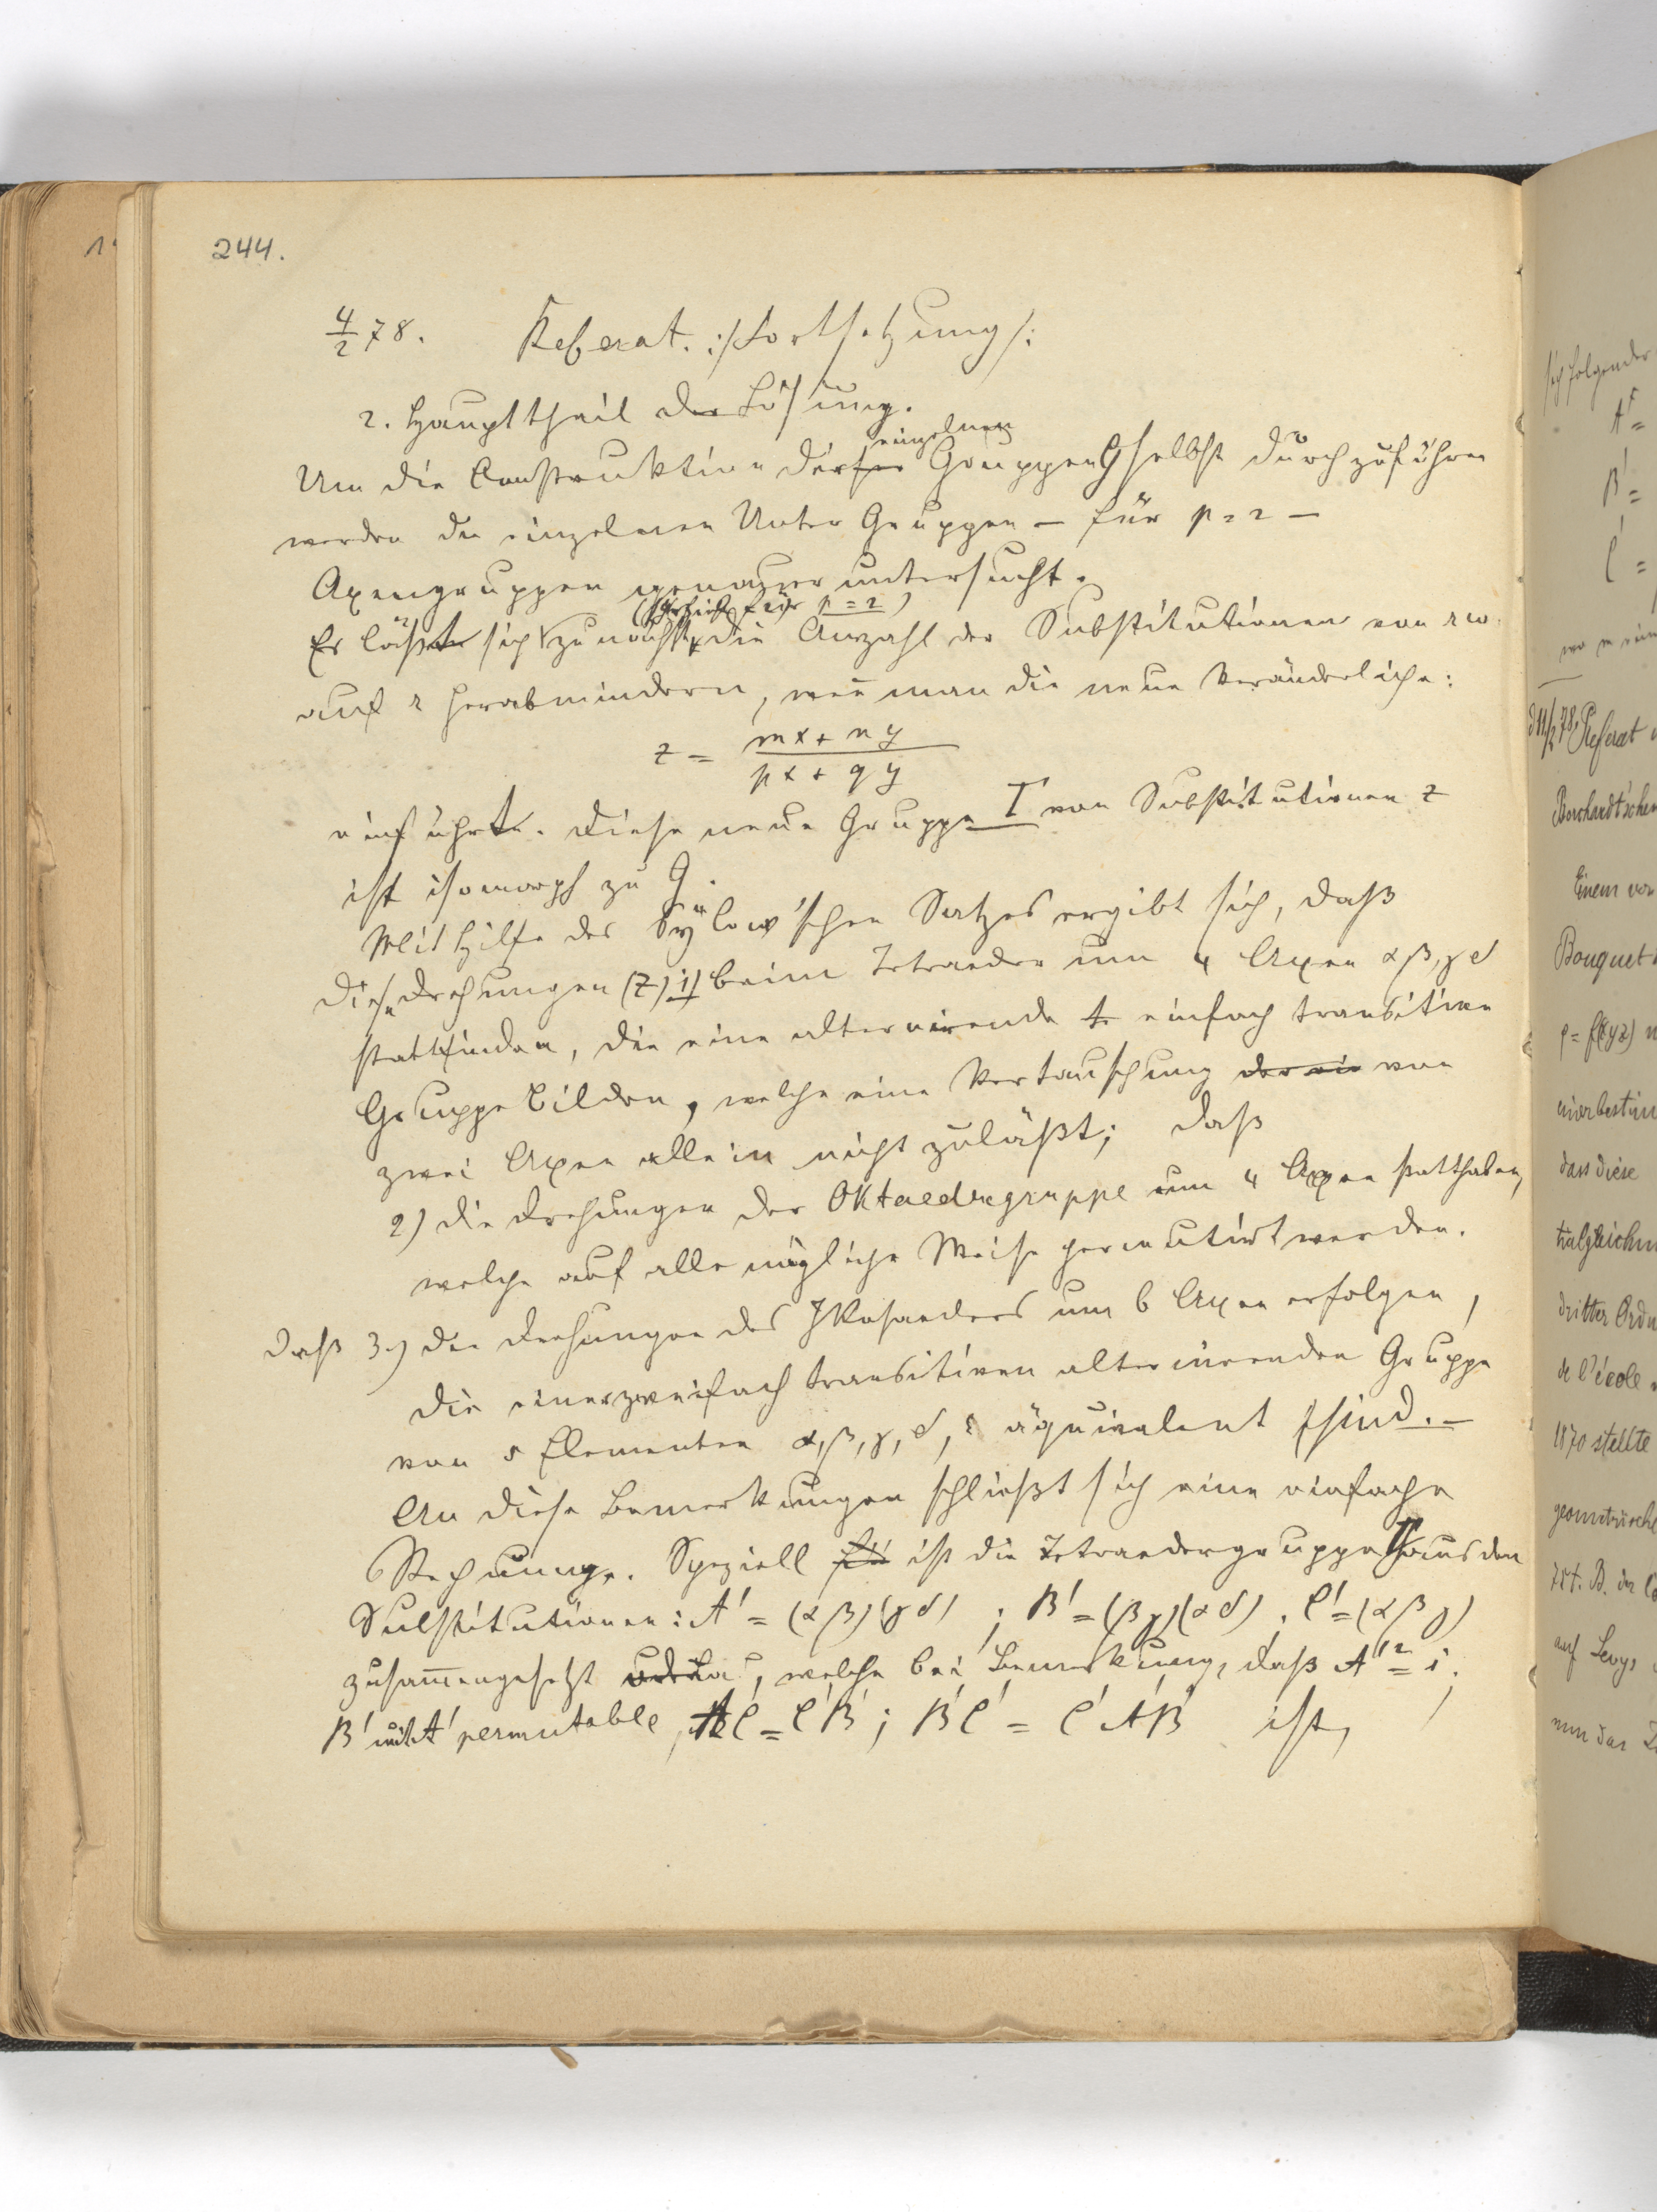 244.
4/2 78. Referat. :/Fortsetzung/:
2. Haupttheil der Lösung.
einzelnen
Um die Construktion der Gruppen G selbst durchzuführen
werden die einzelnen Unter Gruppen — für p = 2 —
Axengruppen genauer untersucht.
(für p = 2)
Es läßt sich zunächst die Anzahl der Substitutionen von rω
auf r herabmindern, weñ man die neue Veränderliche:
z = (mx + ny)/(px + qy)
einführt. Diese neue Gruppe Γ von Substitutionen z
ist isomorph zu G.
Mit Hilfe des Sylow'schen Satzes ergibt sich, daß
die Drehungen (z) 1) beim Tetraeder um 4 Axen α β, γ δ
stattfinden, die eine alternirende einfach transitive
Gruppe bilden, welche eine Vertauschung von
zwei Axen allein nicht zuläßt; daß
2) die Drehungen der Oktaedergruppe um 4 Axen statthaben,
welche auf alle mögliche Weise permutirt werden.
daß 3.) die Drehungen des Ikosaeders um 6 Axen erfolgen,
die einer zweifach transitiven alternirenden Gruppe
von 5 Elementen α, β, γ, δ, ε äquivalent sind. —
An diese Bemerkungen schließt sich eine einfache
Rechnung. Speziell ist die Tetraedergruppe aus den
Substitutionen: A' = (α β) (γ δ) ; B' = (β γ) (α δ) . C' = (α β γ)
zusam̄engesetzt, welche bei Bemerkung, daß A'² = i.
B' mit A' permutable, A'C' = C'B' ; B'C' = C'A'B' ist,
sich folgender
A' =
B' =
C' =
d 11/2 78, Referat
Borchardt'schen
Einem von
Bouquet
ρ = f(xyz)
dass diese
dritter Ordn
de l'école
1870 stellte
geometrische
auf Levy,